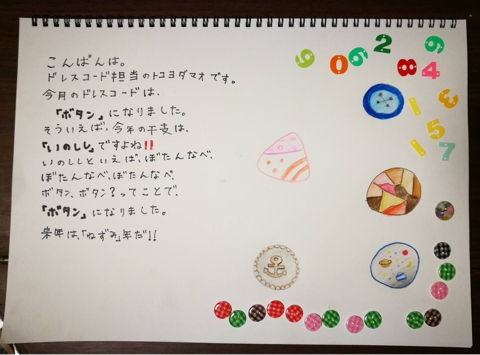 こんばんは。
ドレスコード担当のトコヨダマオです。
今月のドレスコードは、
「ボタン」になりました。
そういえば、今年の干支は、
「いのしし」ですよね!!
いのししといえば、ぼたんなべ、
ぼたんなべ、ぼたんなべ、
ボタン、ボタン?ってことで、
「ボタン」になりました。
来年は、「ねずみ」年だ!!
9 0 6 2 9
8 4
1 3
1 5 7